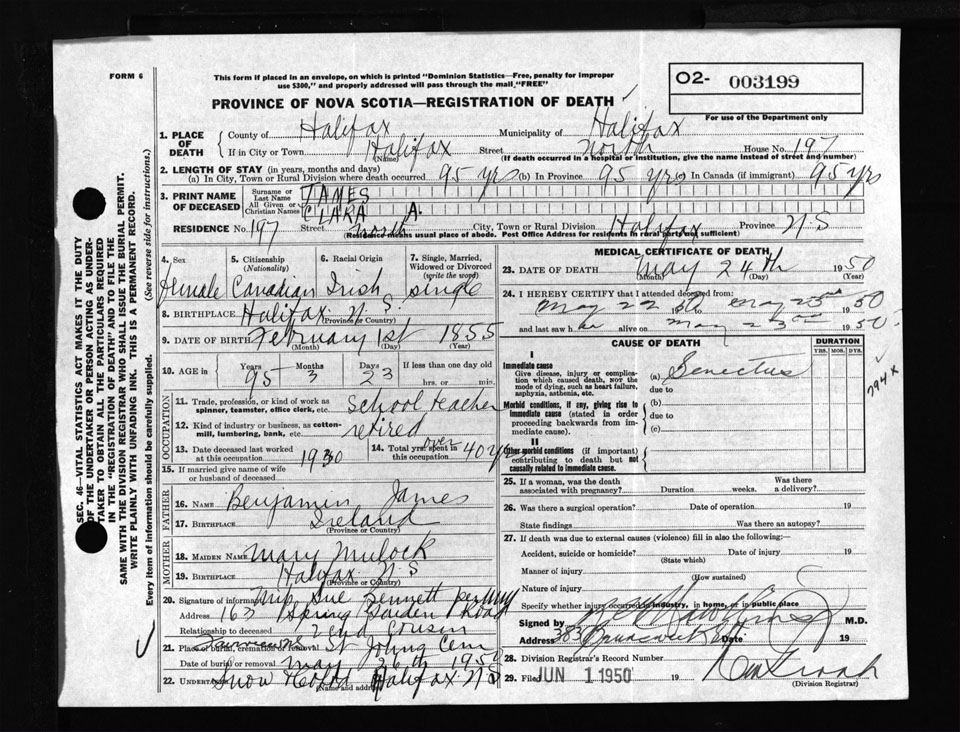 FORM 6
This form if placed in an envelope, on which is printed "Dominion Statistics—Free, penalty for improper
use $300," and properly addressed will pass through the mail "FREE"
O2- 003199
For use of the Department only
PROVINCE OF NOVA SCOTIA—REGISTRATION OF DEATH
1. PLACE OF DEATH
County of Halifax Municipality of Halifax
If in City or Town Halifax (Name) Street North House No. 197
(If death occurred in a hospital or institution, give the name instead of street and number)
2. LENGTH OF STAY (in years, months and days)
(a) In City, Town or Rural Division where death occurred 95 yrs (b) In Province 95 yrs (c) In Canada (if immigrant) 95 yrs
3. PRINT NAME OF DECEASED
Surname or Last Name JAMES
All Given or Christian Names CLARA A.
RESIDENCE No. 197 Street North City, Town or Rural Division Halifax Province N.S
(Residence means usual place of abode. Post Office Address for residents in rural parts not sufficient)
4. Sex female
5. Citizenship (Nationality) Canadian
6. Racial Origin Irish
7. Single, Married, Widowed or Divorced (write the word) single
8. BIRTHPLACE Halifax N.S. (Province or Country)
9. DATE OF BIRTH February 1st 1855
(Month) (Day) (Year)
10. AGE in Years 95 Months 3 Days 23 If less than one day old hrs. or min.
OCCUPATION
11. Trade, profession, or kind of work as spinner, teamster, office clerk, etc. School teacher
12. Kind of industry or business, as cotton-mill, lumbering, bank, etc. retired
13. Date deceased last worked at this occupation 1930
14. Total yrs. spent in this occupation over 40 yrs
15. If married give name of wife or husband of deceased
FATHER
16. NAME Benjamin James
17. BIRTHPLACE Ireland
(Province or Country)
MOTHER
18. MAIDEN NAME Mary Mulock
19. BIRTHPLACE Halifax N.S
(Province or Country)
20. Signature of informant Mrs Sue Bennett
Address 163 Spring Garden Road
Relationship to deceased 2nd Cousin
21. Place of burial, cremation or removal St Johns Cem
Date of burial or removal May 26th 1950
22. UNDERTAKER Snow Halifax N.S
(Name and address)
MEDICAL CERTIFICATE OF DEATH
23. DATE OF DEATH May 24th 1950
(Month) (Day)
24. I HEREBY CERTIFY that I attended deceased from:
May 22 1950 to May 23rd 50
and last saw h er alive on May 23rd 1950
CAUSE OF DEATH
DURATION
YRS. MOS. DYS.
I
Immediate cause
Give disease, injury or complication which caused death, NOT the mode of dying, such as heart failure, asphyxia, asthenia, etc.
(a) Senectus
due to
Morbid conditions, if any, giving rise to immediate cause (stated in order proceeding backwards from immediate cause).
(b)
due to
(c)
II
Other morbid conditions (if important) contributing to death but not causally related to immediate cause.
794 x
25. If a woman, was the death associated with pregnancy? Duration weeks. Was there a delivery?
26. Was there a surgical operation? Date of operation 19
State findings Was there an autopsy?
27. If death was due to external causes (violence) fill in also the following:—
Accident, suicide or homicide? Date of injury 19
(State which)
Manner of injury
(How sustained)
Nature of injury
Specify whether injury occurred in industry, in home, or in public place
Signed by M.D.
Address 303 Brunswick St Date 19
28. Division Registrar's Record Number
29. Filed JUN 1 1950 19
(Division Registrar)
SEC. 46—VITAL STATISTICS ACT MAKES IT THE DUTY
OF THE UNDERTAKER OR PERSON ACTING AS UNDER-
TAKER TO OBTAIN ALL THE PARTICULARS REQUIRED
IN THE "REGISTRATION OF DEATH" AND TO FILE THE
SAME WITH THE DIVISION REGISTRAR WHO SHALL ISSUE THE BURIAL PERMIT.
WRITE PLAINLY WITH UNFADING INK. THIS IS A PERMANENT RECORD.
Every item of information should be carefully supplied. (See reverse side for instructions.)